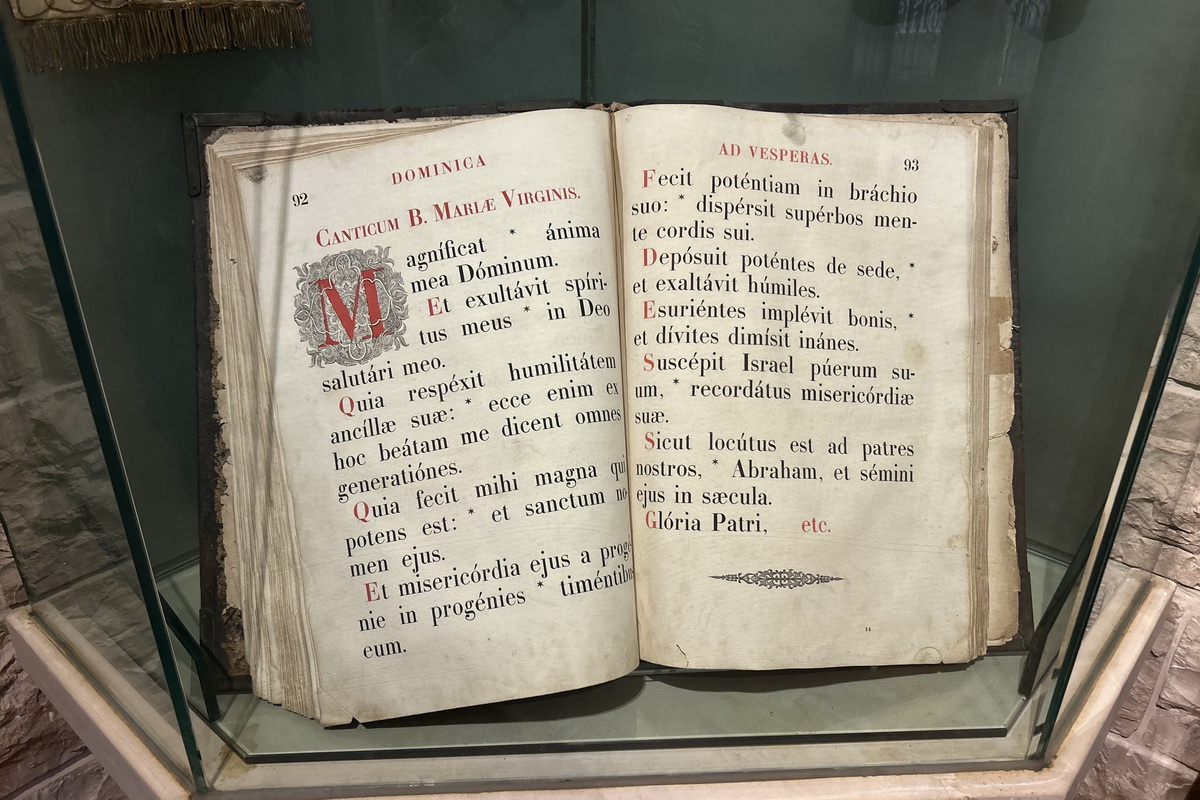 92
DOMINICA
CANTICUM B. MARIÆ VIRGINIS.
Magníficat * ánima
mea Dóminum.
Et exultávit spíri-
tus meus * in Deo
salutári meo.
Quia respéxit humilitátem
ancíllæ suæ: * ecce enim ex
hoc beátam me dicent omnes
generatiónes.
Quia fecit mihi magna qui
potens est: * et sanctum no-
men ejus.
Et misericórdia ejus a progé-
nie in progénies * timéntibus
eum.
AD VESPERAS.
93
Fecit poténtiam in bráchio
suo: * dispérsit supérbos men-
te cordis sui.
Depósuit poténtes de sede, *
et exaltávit húmiles.
Esuriéntes implévit bonis, *
et dívites dimísit inánes.
Suscépit Israel púerum su-
um, * recordátus misericórdiæ
suæ.
Sicut locútus est ad patres
nostros, * Abraham, et sémini
ejus in sæcula.
Glória Patri, etc.
14